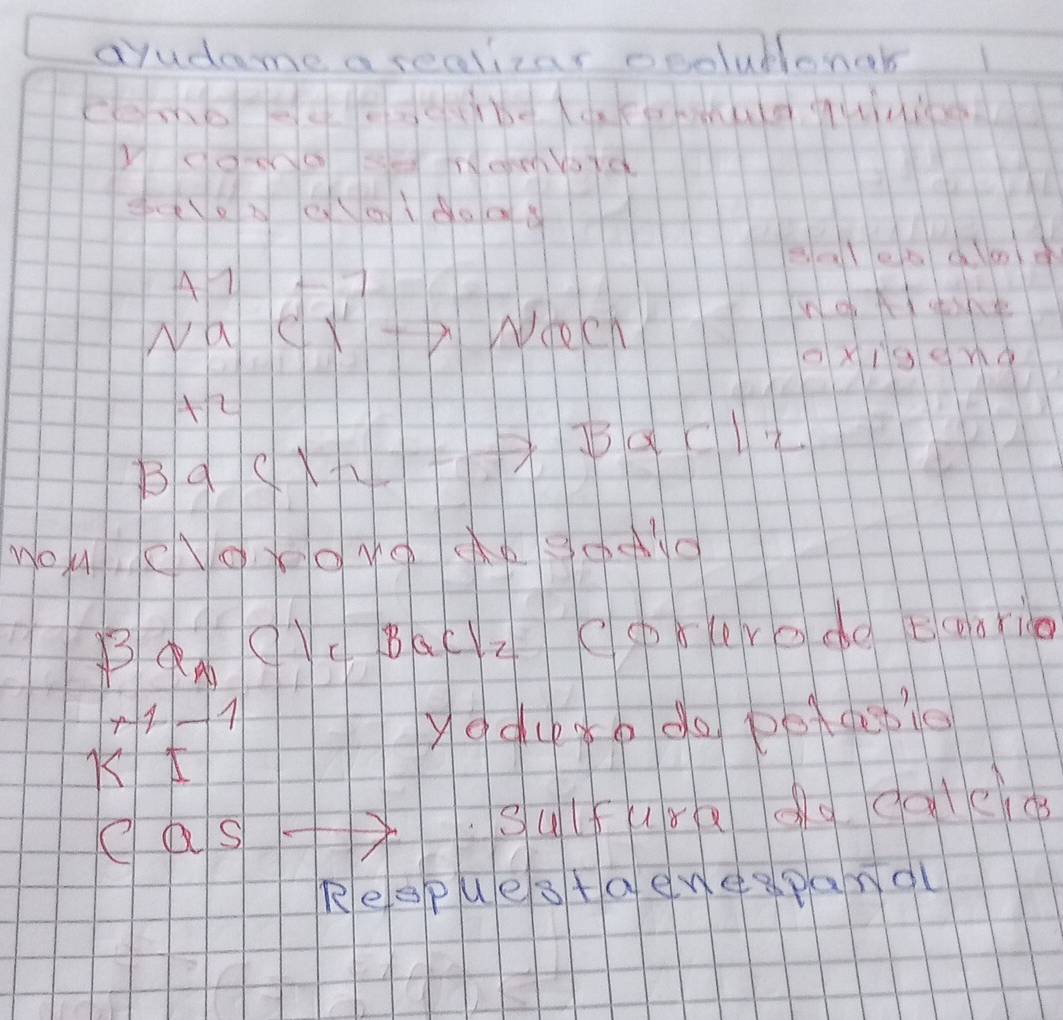 ayudame a realizar o solucionar 1
como se escribe la formula quimica
y como se nombra
sales aloideas
sales aloid
no tiene
oxigeno
+1 -1
Na Cl → Nacl
+2
Ba Cl2 → BaCl2
nom clororo de sodio
Ba Cl BaCl2 Cororo de bario
+1 -1
K I yoduro de potasio
Cas → sulfuro de calcio
Respuesta en español